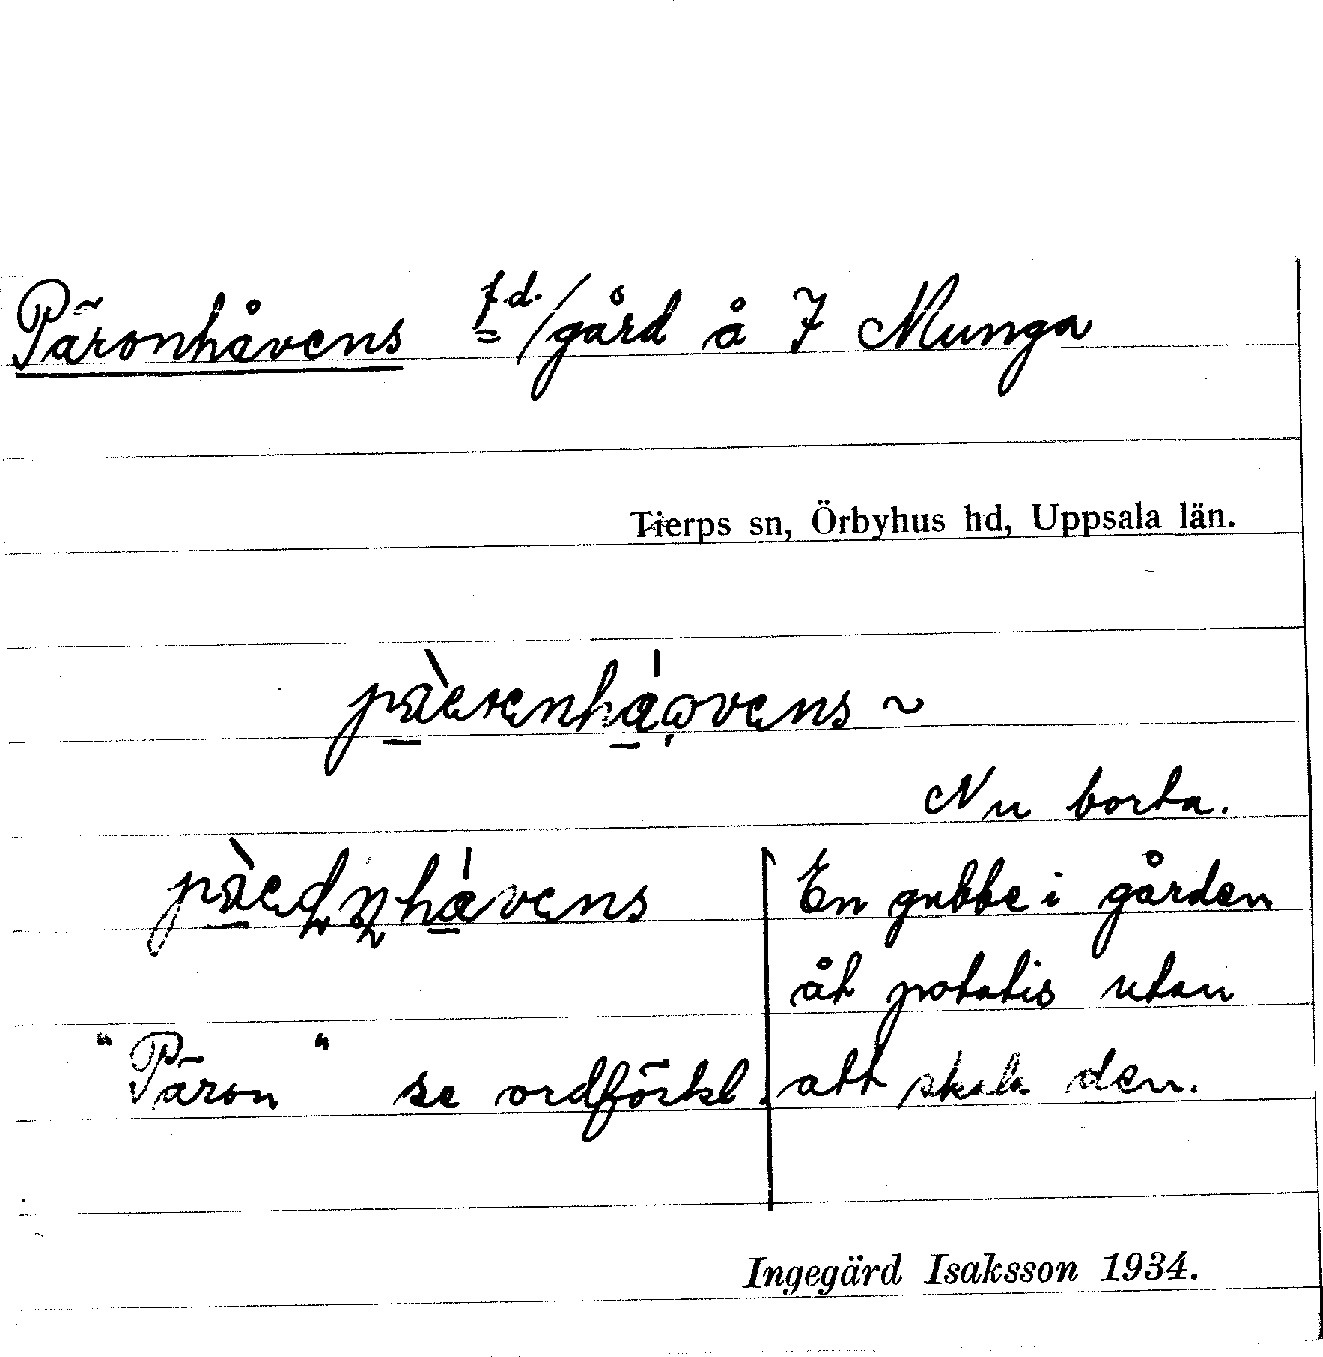 Päronhåvens f.d. / gård å 7 Munga
Tierps sn, Örbyhus hd, Uppsala län.
Nu borta.
En gubbe i gården
åt potatis utan
"Päron" se ordförkl. att skala den.
Ingegärd Isaksson 1934.